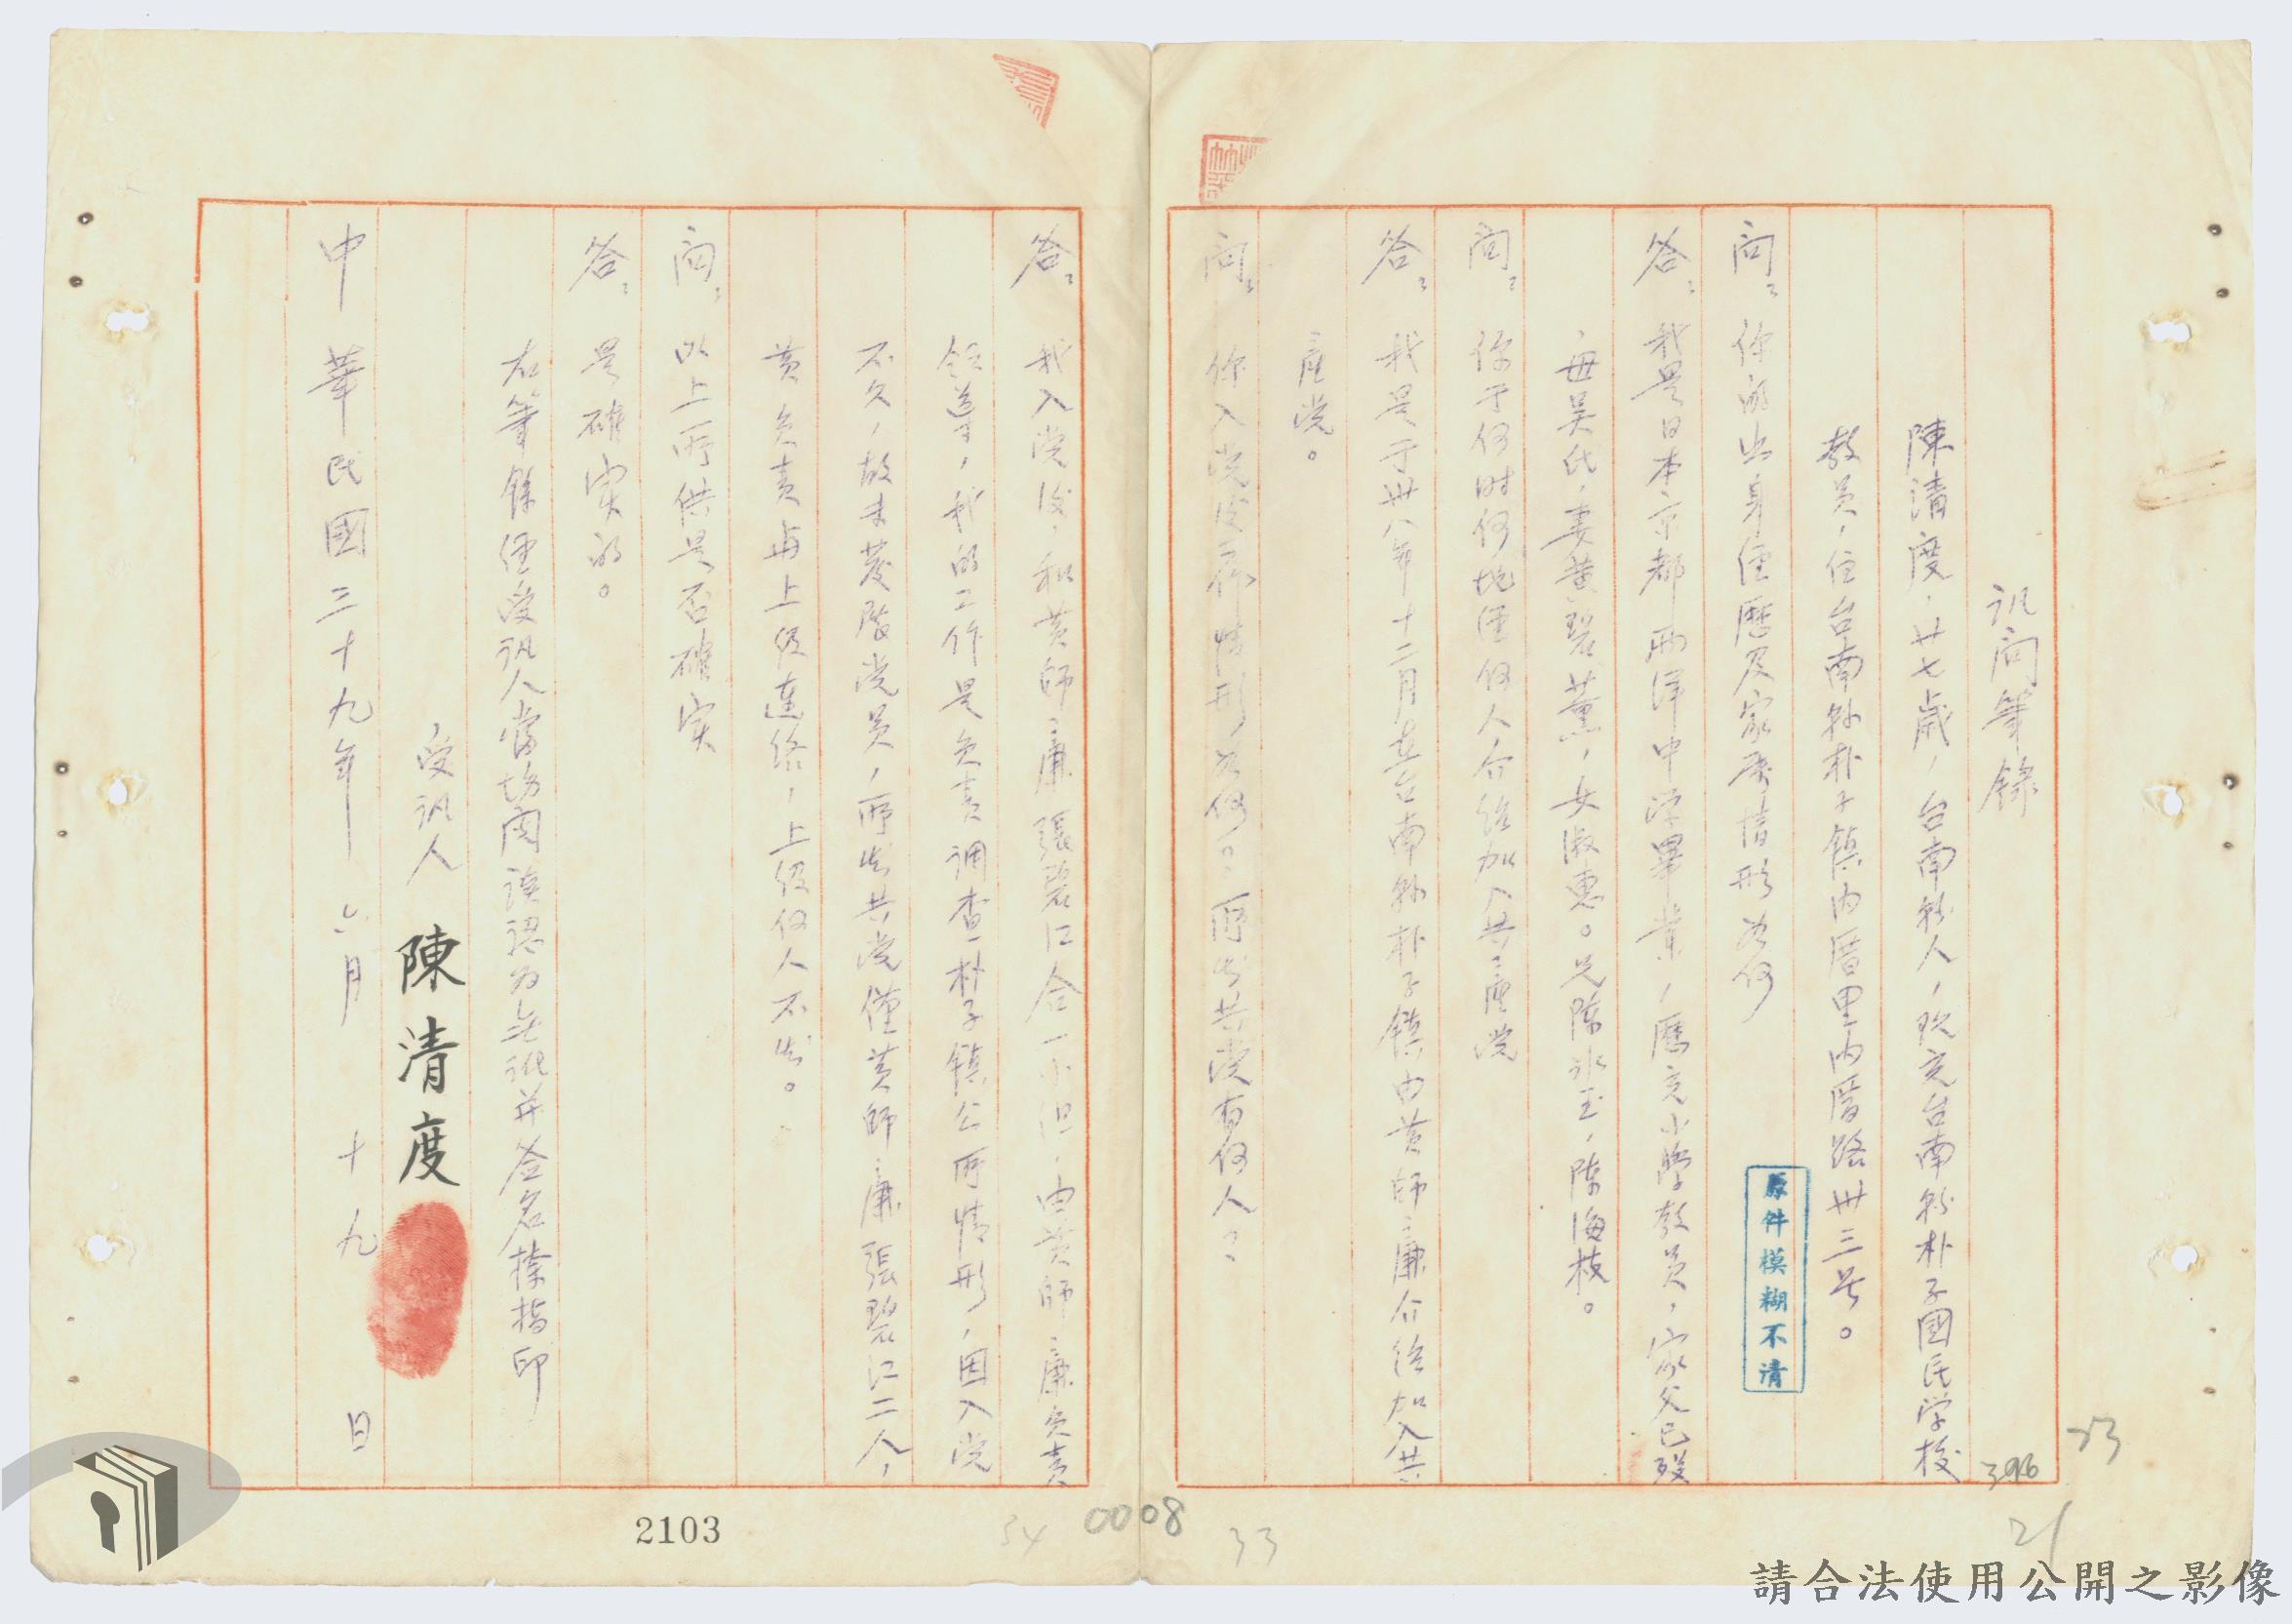 訊問筆錄
陳清度，廿七歲，台南縣人，現充台南縣朴子國民学校
教員，住台南縣朴子鎮內厝里內厝路卅三号。
問：你的出身經歷及家庭情形如何
答：我是日本京都両洋中学畢業，歷充小學教員，家父已歿
，母吴氏，妻黃碧薰，女淑惠。兄陳氷玉，陳海枝。
問：你于何时何地經何人介绍加入共產党
答：我是于卅八年十二月在台南縣朴子鎮由黄師廉介绍加入共
産党。
問：你入党後工作情形如何。所知共党有何人？
答：我入党後，和黄師廉張碧江合一小組，由黄師廉負責
領導，我的工作是負責調查朴子鎮公所情形，因入党
不久，故未發展党員，所知共党僅黄師廉張碧江二人，
黄負責與上级連络，上级何人不知。
問：以上所供是否確实
答：是確实的。
右筆錄經受訊人當場閱讀認为無訛并签名捺指印
受訊人 陳清度
中華民國三十九年六月十九日
原件模糊不清
396
33
21
33
34
0008
2103
請合法使用公開之影像